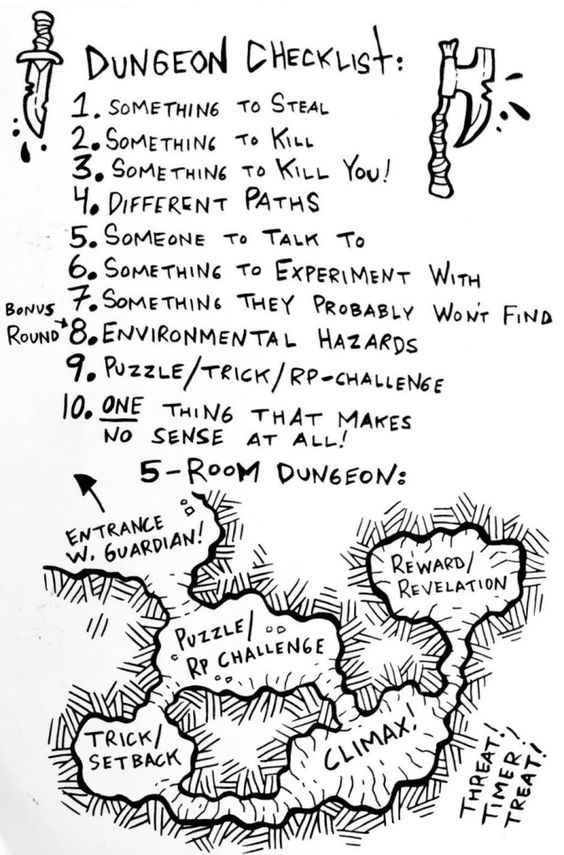 DUNGEON CHECKLIST:
1. SOMETHING TO STEAL
2. SOMETHING TO KILL
3. SOMETHING TO KILL YOU!
4. DIFFERENT PATHS
5. SOMEONE TO TALK TO
6. SOMETHING TO EXPERIMENT WITH
7. SOMETHING THEY PROBABLY WON'T FIND
BONUS
ROUND
8. ENVIRONMENTAL HAZARDS
9. PUZZLE/TRICK/RP-CHALLENGE
10. ONE THING THAT MAKES
NO SENSE AT ALL!
5-ROOM DUNGEON:
ENTRANCE
W. GUARDIAN!
REWARD/
REVELATION
PUZZLE/
RP CHALLENGE
TRICK/
SETBACK
CLIMAX!
THREAT!
TIMER!
TREAT!